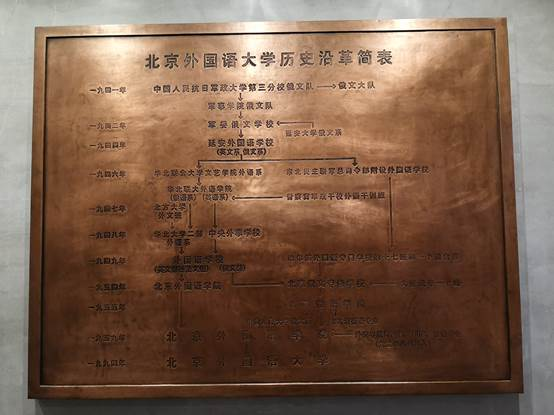 北京外国语大学历史沿革简表
一九四一年 中国人民抗日军政大学第三分校俄文队 俄文大队
军事学院俄文队
一九四二年 军委俄文学校
延安大学俄文系
一九四四年 延安外国语学校
(英文系 俄文系)
一九四六年 华北联合大学文艺学院外语系 东北民主联军总司令部附设外国语学校
华北联大外语学院
(俄语系) (英语系)
一九四七年 北方大学
外文班
一九四八年 华北大学二部 中央外事学校
外语系
一九四九年 外国语学校
一九五四年 北京外国语学院 北京俄文专修学校
一九五五年
一九五九年 北京外国语学院
一九九四年 北京外国语大学